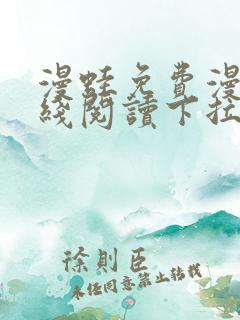 漫蛙免費漫
綫閱讀下拉
徐則臣
未经同意禁止转载